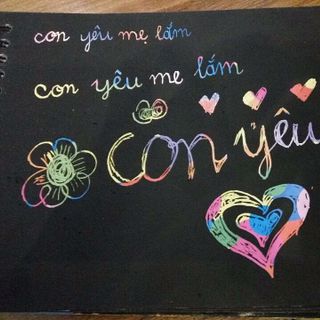 con yêu mẹ lắm
con yêu me lắm
con yêu